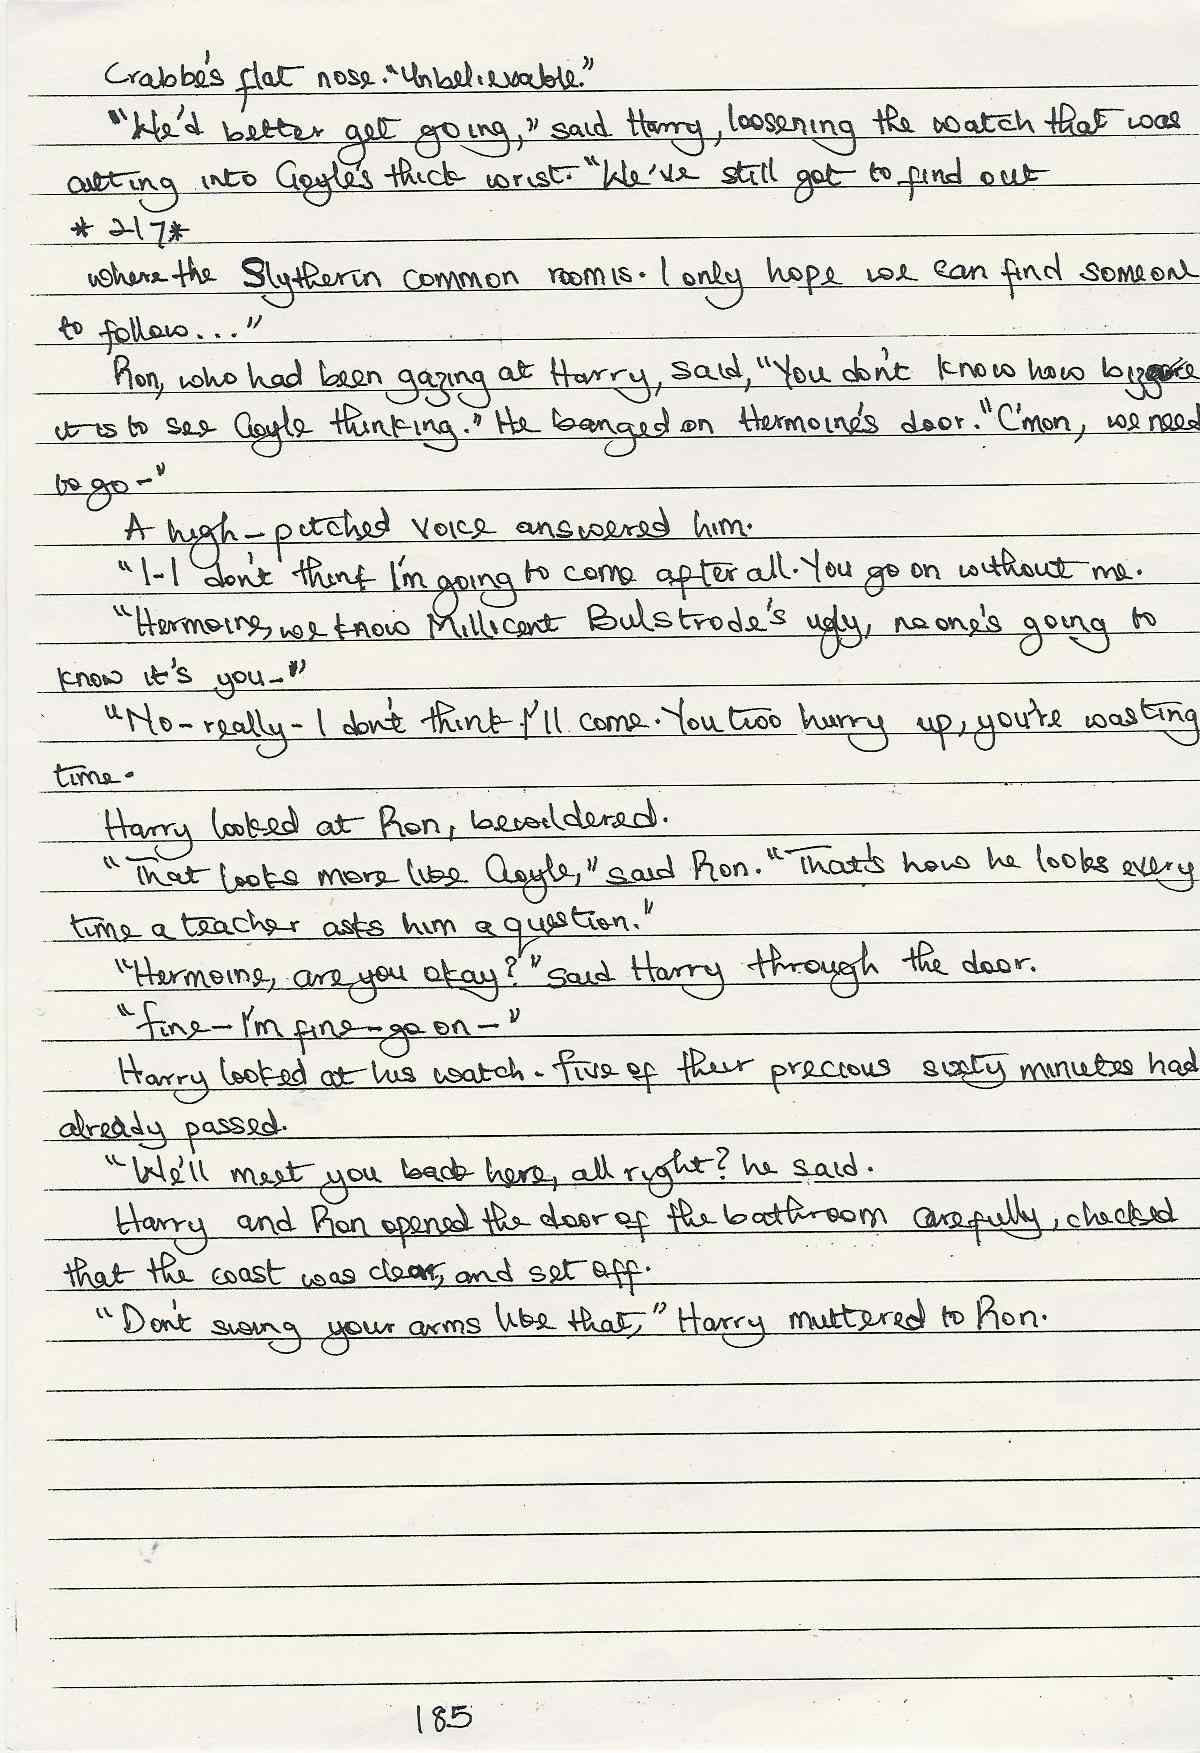 Crabbe's flat nose. "Unbelievable."
"We'd better get going," said Harry, loosening the watch that was
cutting into Goyle's thick wrist. "We've still got to find out
* 217*
where the Slytherin common room is. I only hope we can find someone
to follow..."
Ron, who had been gazing at Harry, said, "You don't know how bizarre
it is to see Goyle thinking." He banged on Hermoine's door. "C'mon, we need
to go-"
A high-pitched voice answered him.
"I-I don't think I'm going to come after all. You go on without me.
"Hermoine, we know Millicent Bulstrode's ugly, no one's going to
know it's you-"
"No-really-I don't think I'll come. You two hurry up, you're wasting
time.
Harry looked at Ron, bewildered.
"That looks more like Goyle," said Ron. "That's how he looks every
time a teacher asks him a question."
"Hermoine, are you okay?" said Harry through the door.
"fine-I'm fine-go on-"
Harry looked at his watch. five of their precious sixty minutes had
already passed.
"We'll meet you back here, all right? he said.
Harry and Ron opened the door of the bathroom carefully, checked
that the coast was clear, and set off.
"Don't swing your arms like that," Harry muttered to Ron.
185